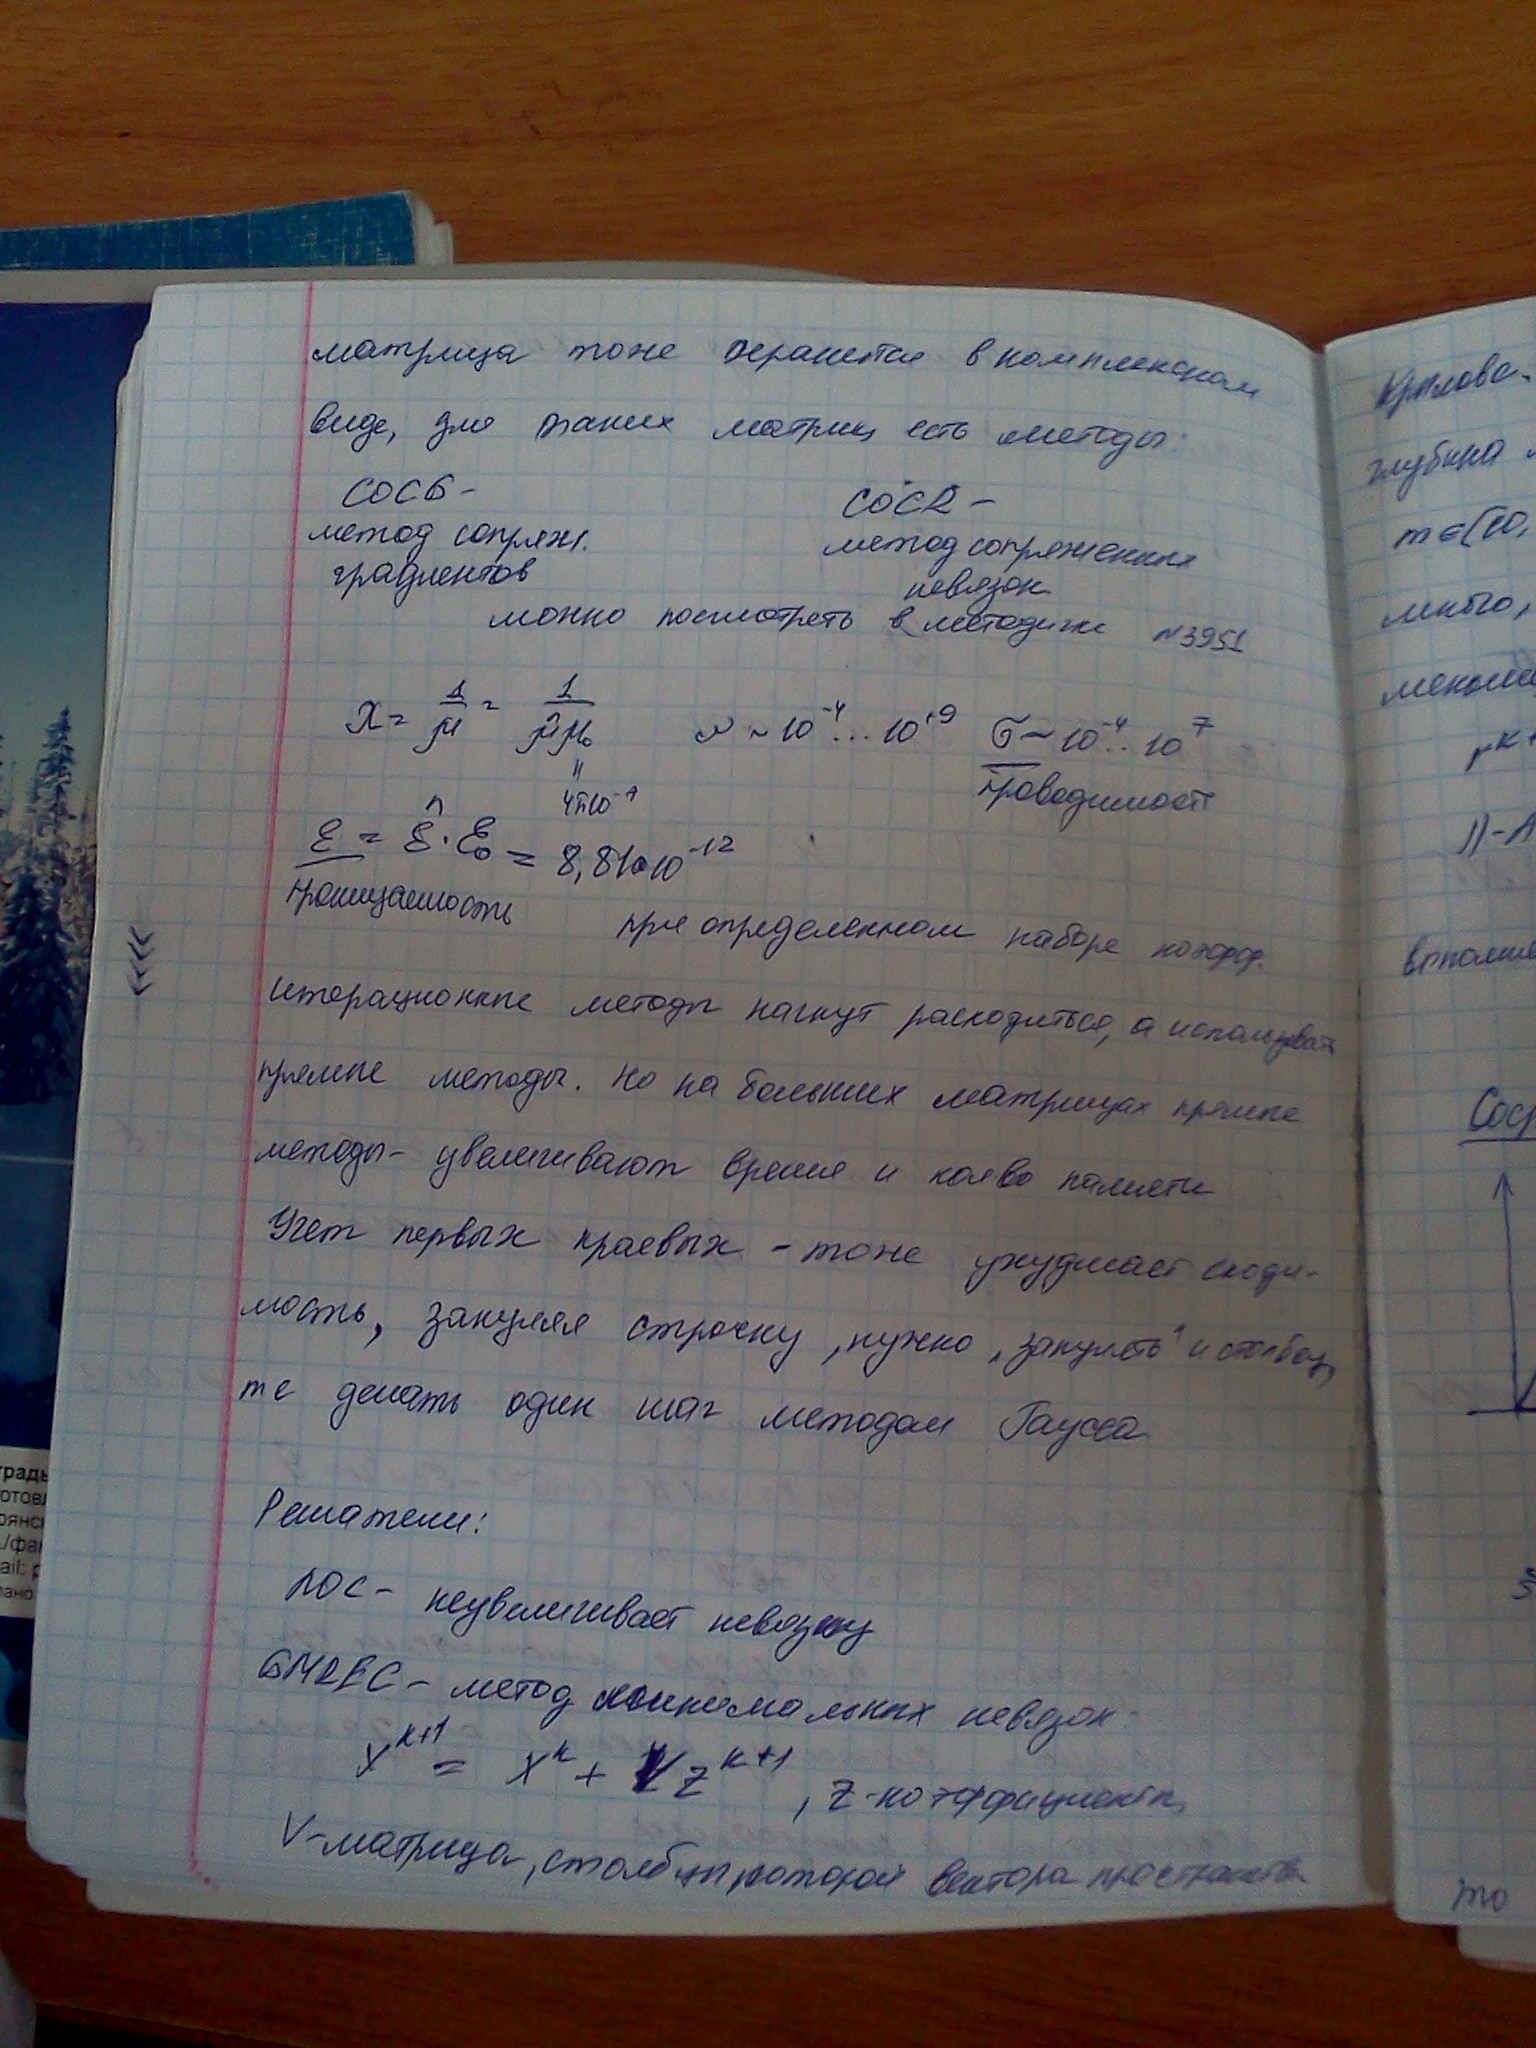 матрица тоже хранится в комплексном
виде, для таких матриц есть методы:
COCG -
метод сопряж.
градиентов
COCR -
метод сопряженных
невязок
можно посмотреть в методичке №3951
χ = 1/μ = 1/(μ̂μ₀)
ω ~ 10⁻⁴ ... 10⁺⁹
σ ~ 10⁻⁴ .. 10⁷
проводимость
4π10⁻⁷
ε = ε̂ · ε₀ = 8,81·10⁻¹²
проницаемость
при определенном наборе коэфф.
итерационные методы начнут расходиться, а использовать
прямые методы. Но на больших матрицах прямые
методы - увеличивают время и кол-во памяти
Учет первых краевых - тоже ухудшает сходи-
мость, зануляя строчку, нужно „занулять" и столбец,
те делать один шаг методом Гаусса
Решатели:
ЛОС - неувеличивает невязку
GMREC - метод минимальных невязок:
x^{k+1} = x^k + V z^{k+1}, z-коэффициенты,
V-матрица, столбцы, которой вектора пространства
Крылова.
глубина
m ∈ [10,
много,
меньше
r^{k+
||-A
то